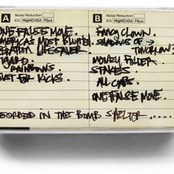 A
Noise Reduction
EQ High(CrO2) 70µs
ONE FALSE MOVE.
AMERICAS MOST BLUNTED.
OPERATION LIFESAVER
FIGARO.
RAINBOWS.
JUST FOR KICKS.
B
Noise Reduction
EQ High(CrO2) 70µs
FANCY CLOWN.
SHADOWS OF
TOMORROW
MONEY FOLDER
STAKES.
ALL CAPS.
ONE FALSE MOVE.
RECORDED IN THE BOMB SHELTER.....